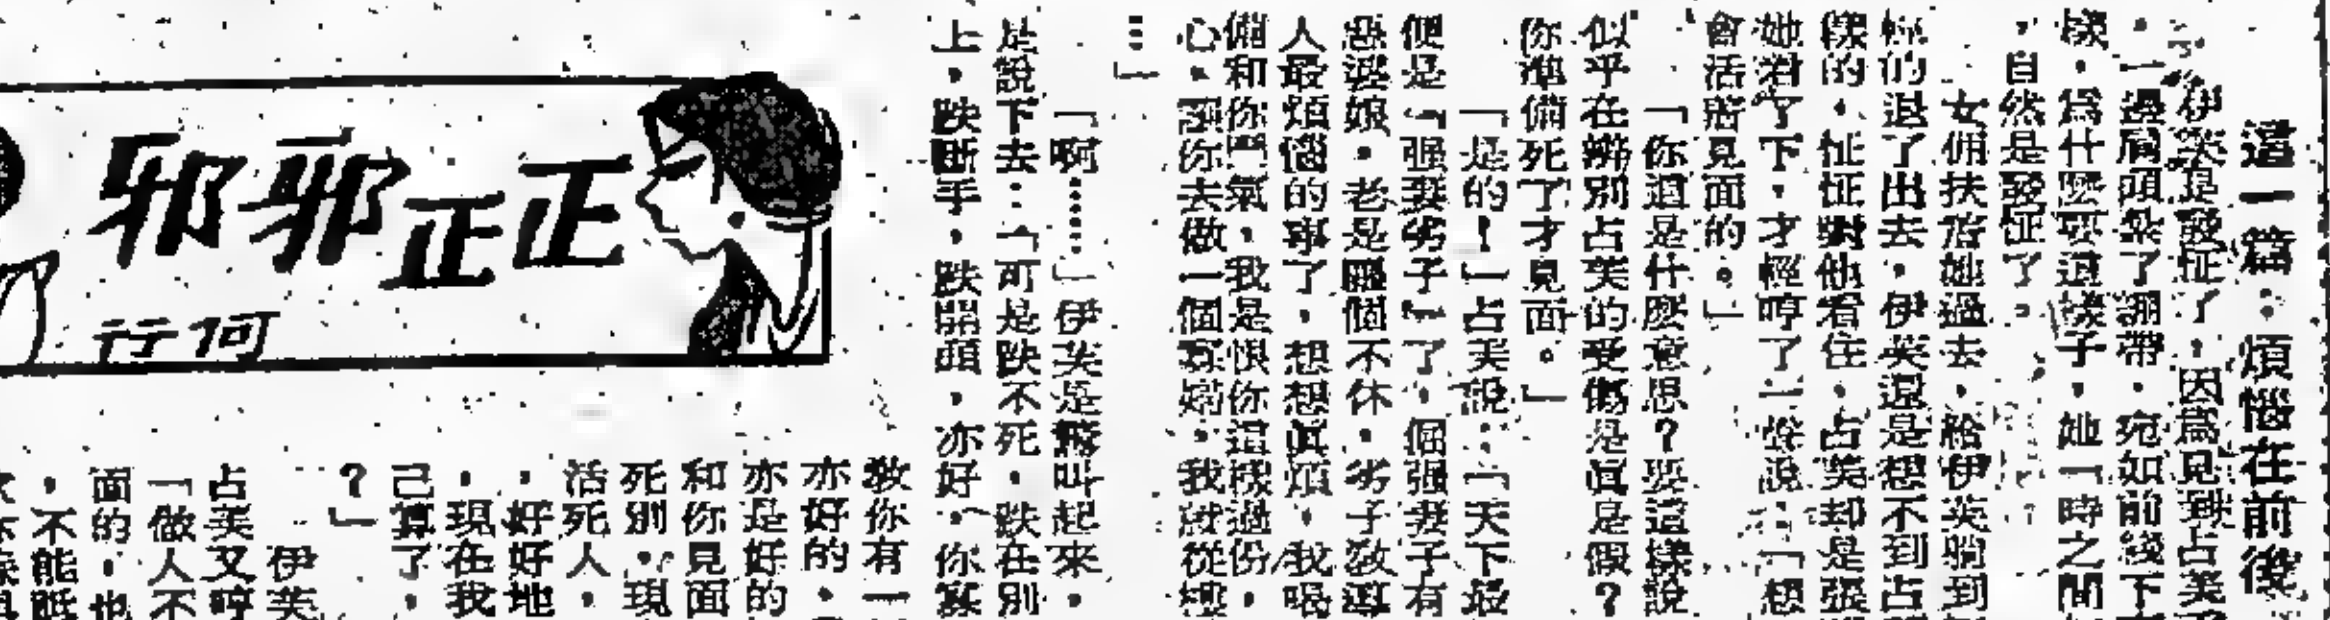 這一篇：煩惱在前後
伊芙是發怔了，因為見到占美
，一邊肩頭紮了綳帶，宛如前綫下
樣，為什麼要這樣子，她一時之間
，自然是發怔了。
女佣扶着她過去，給伊芙躺到
的退了出去，伊芙還是想不到占
樣的，怔怔對他看住，占美却是張
她看了下，才輕哼了一聲說：「想
會活着見面的。」
「你這是什麼意思？要這樣說
似乎在辨別占美的受傷是眞是假？
你準備死了才見面。」
「是的！」占美說：「天下最
便是『强妻劣子』了，倔强妻子有
惡婆娘，老是囉個不休，劣子敎導
人最煩惱的事了，想想眞煩，我喝
備和你鬥氣，我是恨你這樣過份，
心，讓你去做一個寡婦，我設從樓
…」
「啊……」伊芙是驚叫起來，
是說下去：「可是跌不死，跌在別
上，跌斷手，跌開頭，亦好，你寡
正正邪邪
何行
敎你有一
亦好的，
亦是好的
和你見面
死別，現
活死人，
，好好地
，現在我
己算了，
？」
伊芙
占美又哼
「做人不
面的，也
，不能